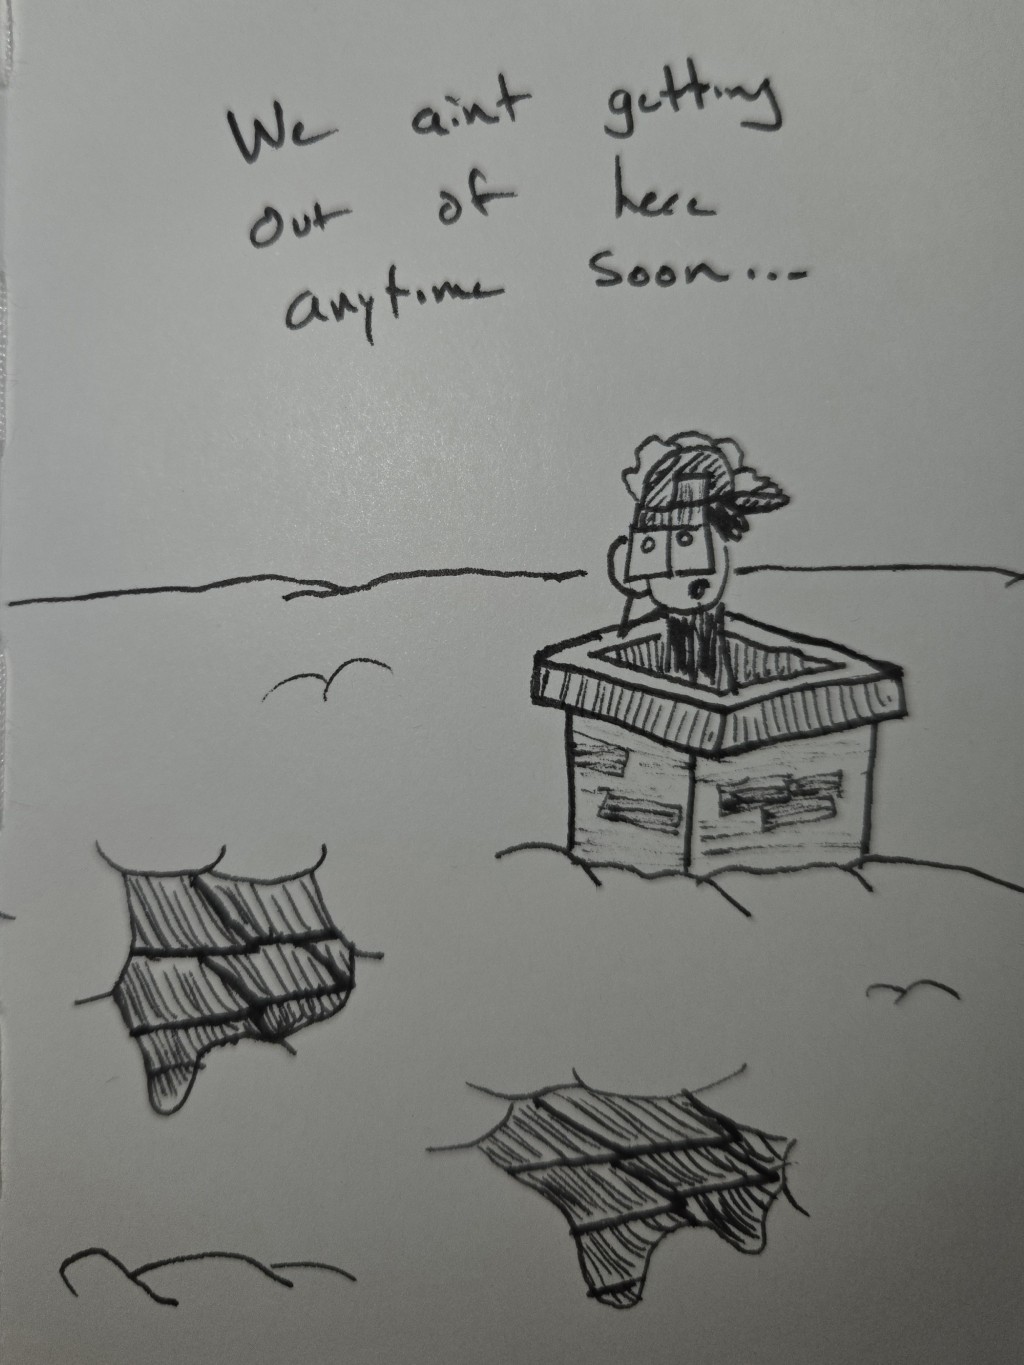 We aint getting
out of here
anytime soon...